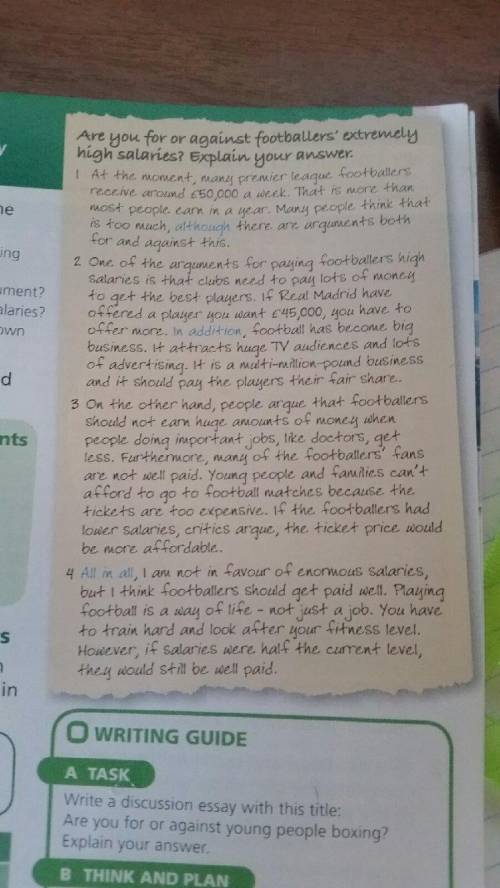 Are you for or against footballers' extremely
high salaries? Explain your answer.
1 At the moment, many premier league footballers
receive around £50,000 a week. That is more than
most people earn in a year. Many people think that
is too much, although there are arguments both
for and against this.
2 One of the arguments for paying footballers high
salaries is that clubs need to pay lots of money
to get the best players. If Real Madrid have
offered a player you want £45,000, you have to
offer more. In addition, football has become big
business. It attracts huge TV audiences and lots
of advertising. It is a multi-million-pound business
and it should pay the players their fair share.
3 On the other hand, people argue that footballers
should not earn huge amounts of money when
people doing important jobs, like doctors, get
less. Furthermore, many of the footballers' fans
are not well paid. Young people and families can't
afford to go to football matches because the
tickets are too expensive. If the footballers had
lower salaries, critics argue, the ticket price would
be more affordable.
4 All in all, I am not in favour of enormous salaries,
but I think footballers should get paid well. Playing
football is a way of life - not just a job. You have
to train hard and look after your fitness level.
However, if salaries were half the current level,
they would still be well paid.
WRITING GUIDE
A TASK
Write a discussion essay with this title:
Are you for or against young people boxing?
Explain your answer.
B THINK AND PLAN